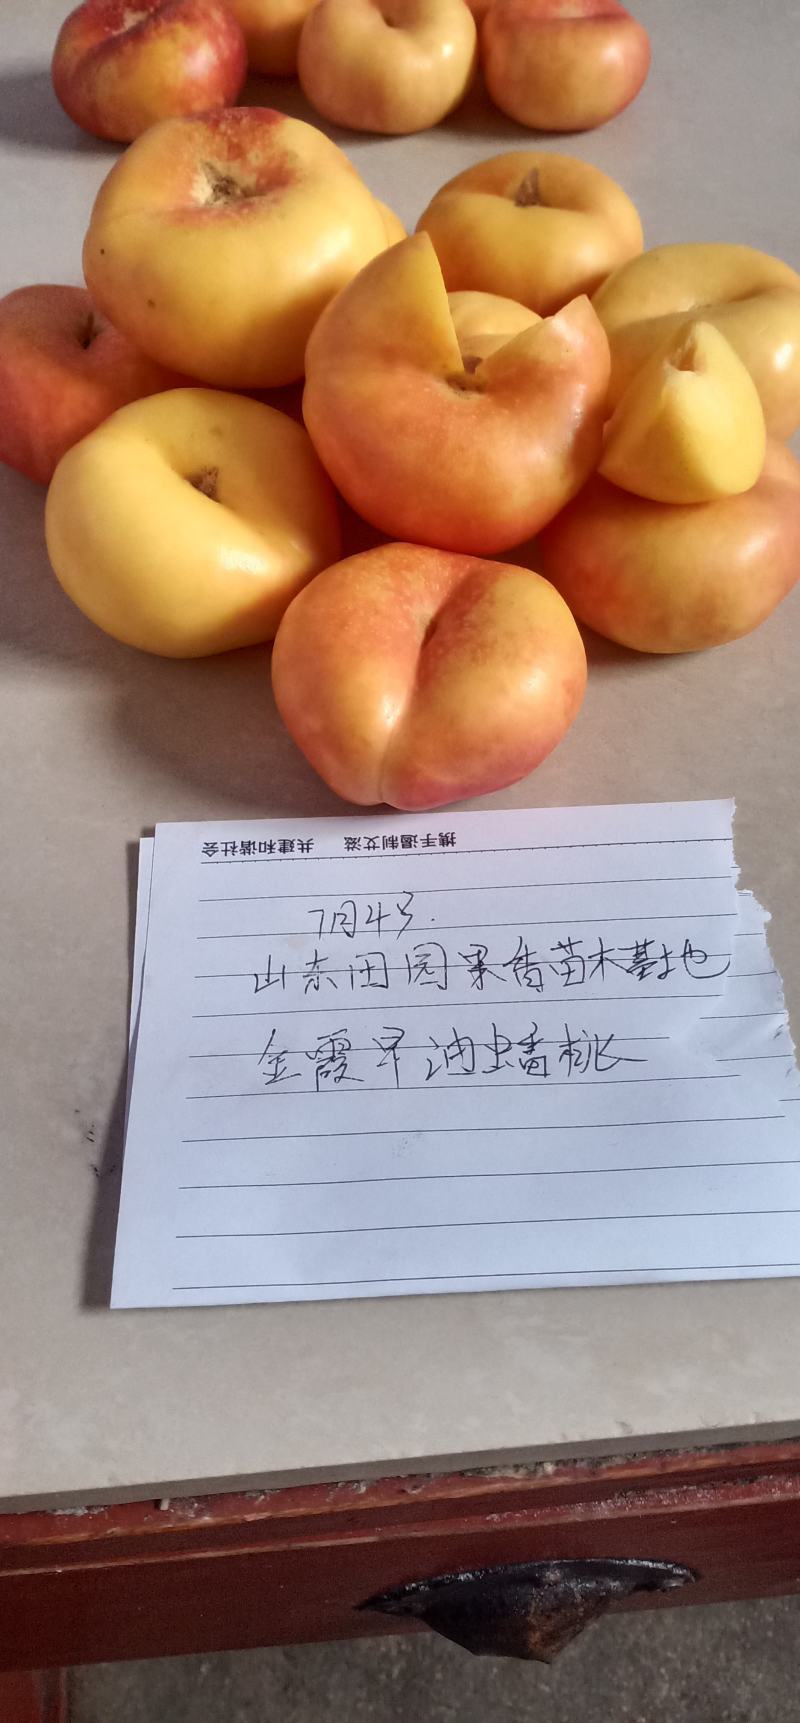 携手遏制艾滋 共建和谐社会
7月4号.
山东田园果香苗木基地
金霞早油蟠桃